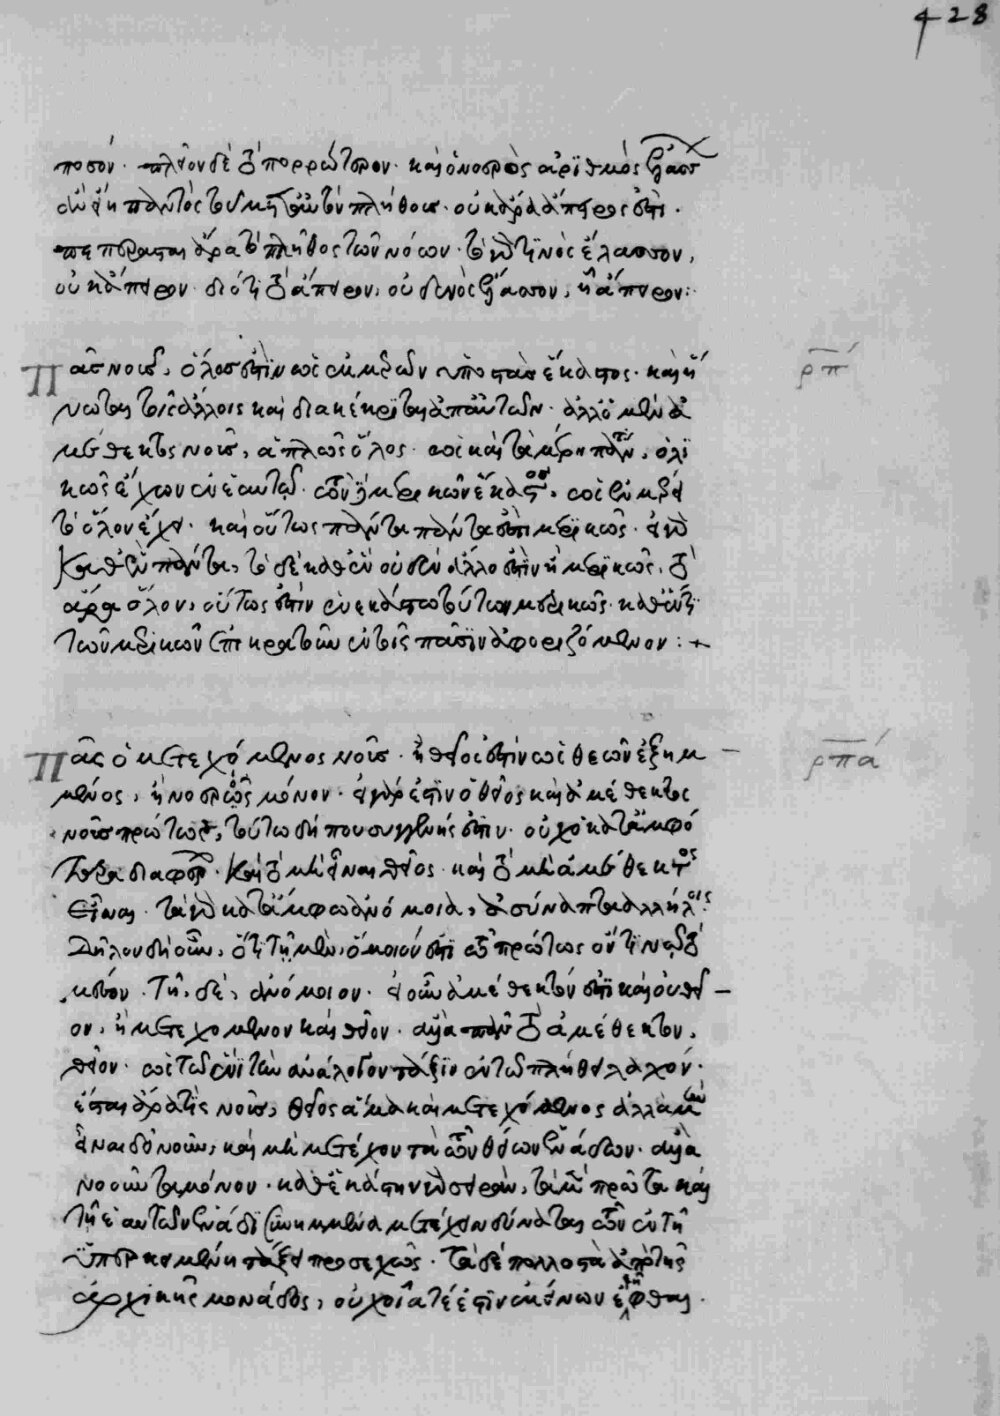 428
ποσόν· πλεῖον δὲ τὸ πορρώτερον· καὶ ὁ νοερὸς ἀριθμὸς ἐλάσσων
παντὸς τοῦ μετ' αὐτὸν πλήθους· οὐκ ἄρα ἄπειρός ἐστι·
πεπέρασται ἄρα τὸ πλῆθος τῶν νόων· τὸ γὰρ τινὸς ἔλασσον,
οὐκ ἄπειρον· διότι τὸ ἄπειρον, οὐδενὸς ἔλασσον, ἢ ἄπειρον:
ρπ
Πᾶς νοῦς, ὅλος ἐστὶν ὡς ἐκ μερῶν ὑποστὰς ἕκαστος· καὶ ἥ
νωται τοῖς ἄλλοις καὶ διακέκριται ἀπ' αὐτῶν· ἀλλ' ὁ μὲν ἀ
μέθεκτος νοῦς, ἁπλῶς ὅλος· ὡς καὶ τὰ μέρη πάντα, ὁλι
κῶς ἔχων ἐν ἑαυτῷ· τῶν δὲ μερικῶν ἕκαστος, ὡς ἐν μέρει
τὸ ὅλον ἔχει· καὶ οὕτως πάντα ἐστὶ μερικῶς·
καθ' ἓν πάντα, τὸ δὲ καθ' ἓν οὐδὲν ἄλλο ἐστὶν ἢ μερικῶς, τὸ
ἄρα ὅλον, οὕτως ἐστὶν ἐν ἑκάστῳ τούτων μερικῶς· καθ' ἕν τι
τῶν μερικῶν ἐπικρατοῦν ἐν τοῖς πᾶσιν ἀφοριζόμενον:+
ρπα
Πᾶς ὁ μετεχόμενος νοῦς· ἢ θεῖός ἐστιν ὡς θεῶν ἐξημ
μένος, ἢ νοερὸς μόνον· εἰ γάρ ἐστιν ὁ θεῖος καὶ ἀμέθεκτος
νοῦς πρώτως, τούτῳ δήπου συγγενής ἐστιν· οὐχ ὁ κατ' ἀμφό
τερα διαφέρων· καὶ τὸ μὴ εἶναι θεῖος· καὶ τὸ μὴ ἀμέθεκτος
εἶναι· τὰ γὰρ κατ' ἄμφω ἀνόμοια, ἀσύναπτα ἀλλήλοις·
Δῆλον δὴ οὖν, ὅτι τῇ μὲν, ὅμοιόν ἐστι τῷ πρώτως ὄντι νῷ τὸ
μέσον· τῇ, δέ, ἀνόμοιον· ἢ οὖν ἀμέθεκτόν ἐστι καὶ οὐ θεῖ
ον, ἢ μετεχόμενον καὶ θεῖον· ἀλλὰ πᾶν τὸ ἀμέθεκτον,
θεῖον· ὡς τῷ ἑνὶ τὴν ἀνάλογον τάξιν ἐν τῷ πλήθει λαχόν·
ἔσται ἄρα τις νοῦς, θεῖος ἅμα καὶ μετεχόμενος ἀλλὰ μὴν
εἶναι δεῖ νοῦν, καὶ μὴ μετέχοντα τῶν θείων ἑνάδων· ἀλλὰ
νοοῦντα μόνον· καθ' ἑκάστην γὰρ σειρὰν, τὰ μὲν πρῶτα καὶ
τῇ ἑαυτῶν ἑνάδι συνημμένα μετέχειν δύναται τῶν ἐν τῇ
ὑπερκειμένῃ τάξει προσεχῶς· τὰ δὲ πολλοστὰ ἀπὸ τῆς
ἀρχικῆς μονάδος, οὐχ οἷά τέ ἐστιν ἐκείνων ἐφῆφθαι·